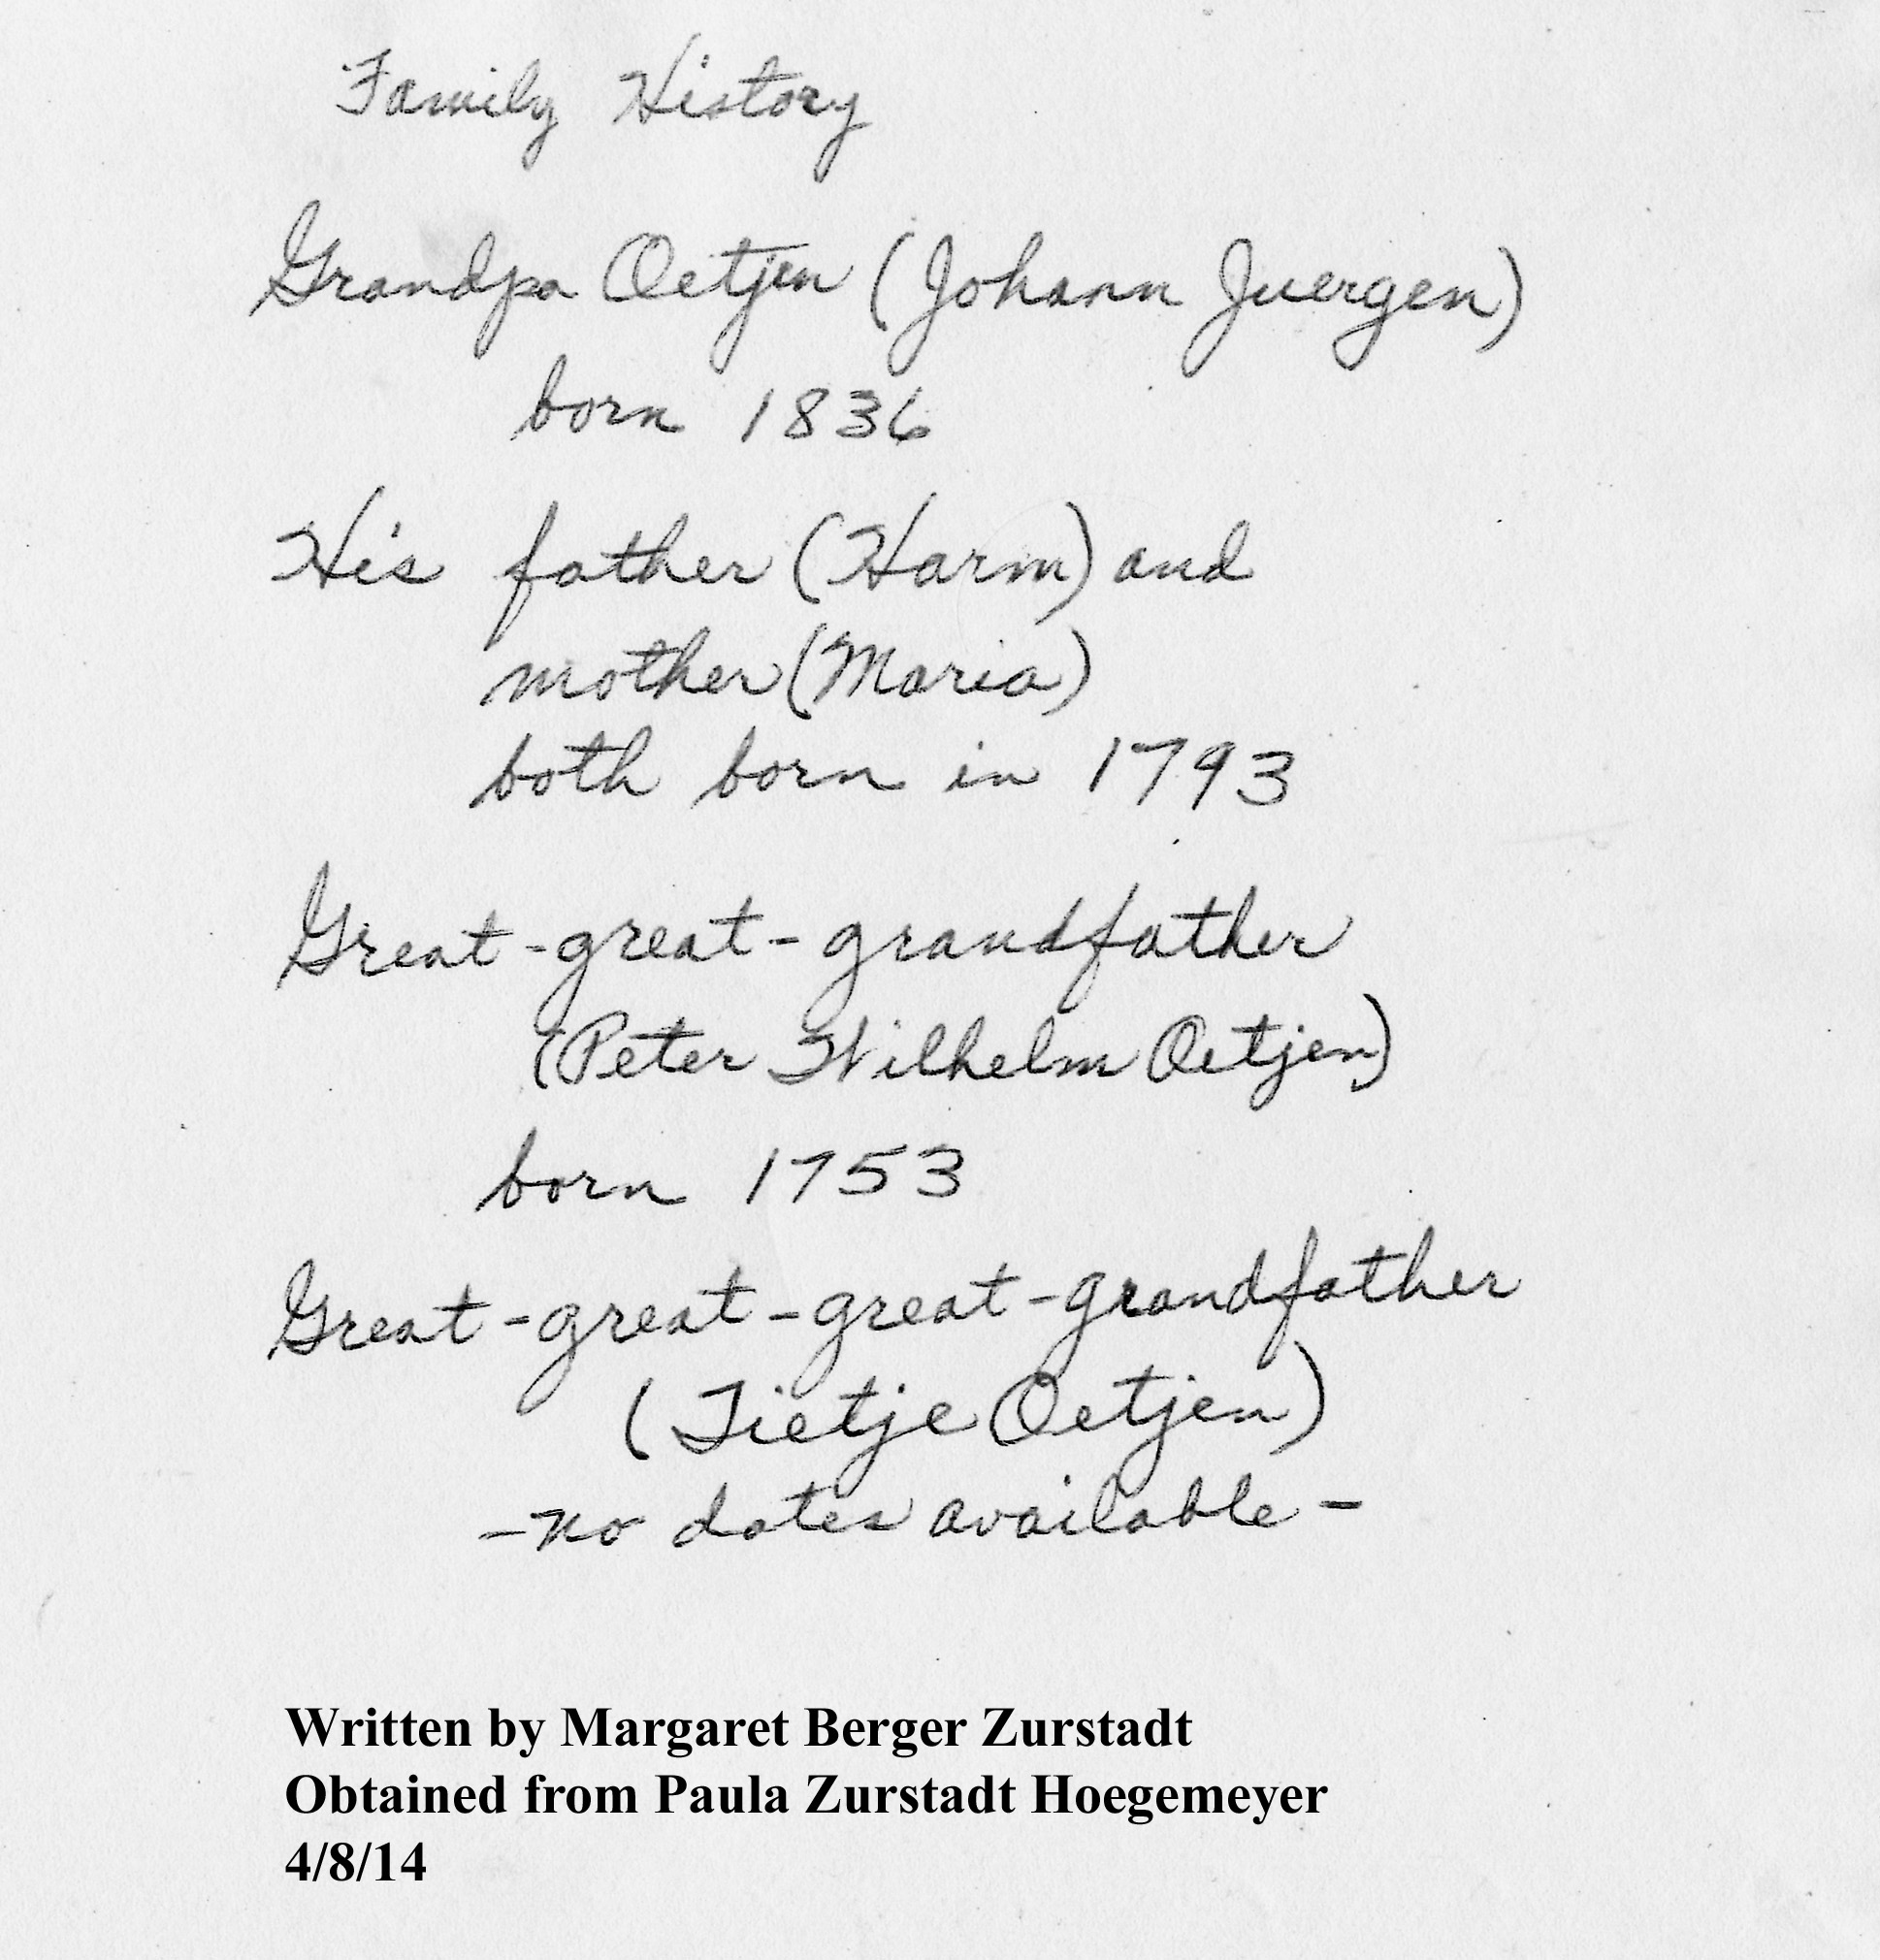 Family History
Grandpa Oetjen (Johann Juergen)
born 1836
His father (Harm) and
mother (Maria)
both born in 1793
Great-great-grandfather
(Peter Wilhelm Oetjen)
born 1753
Great-great-great-grandfather
(Tietje Oetjen)
-no dates available-
Written by Margaret Berger Zurstadt
Obtained from Paula Zurstadt Hoegemeyer
4/8/14